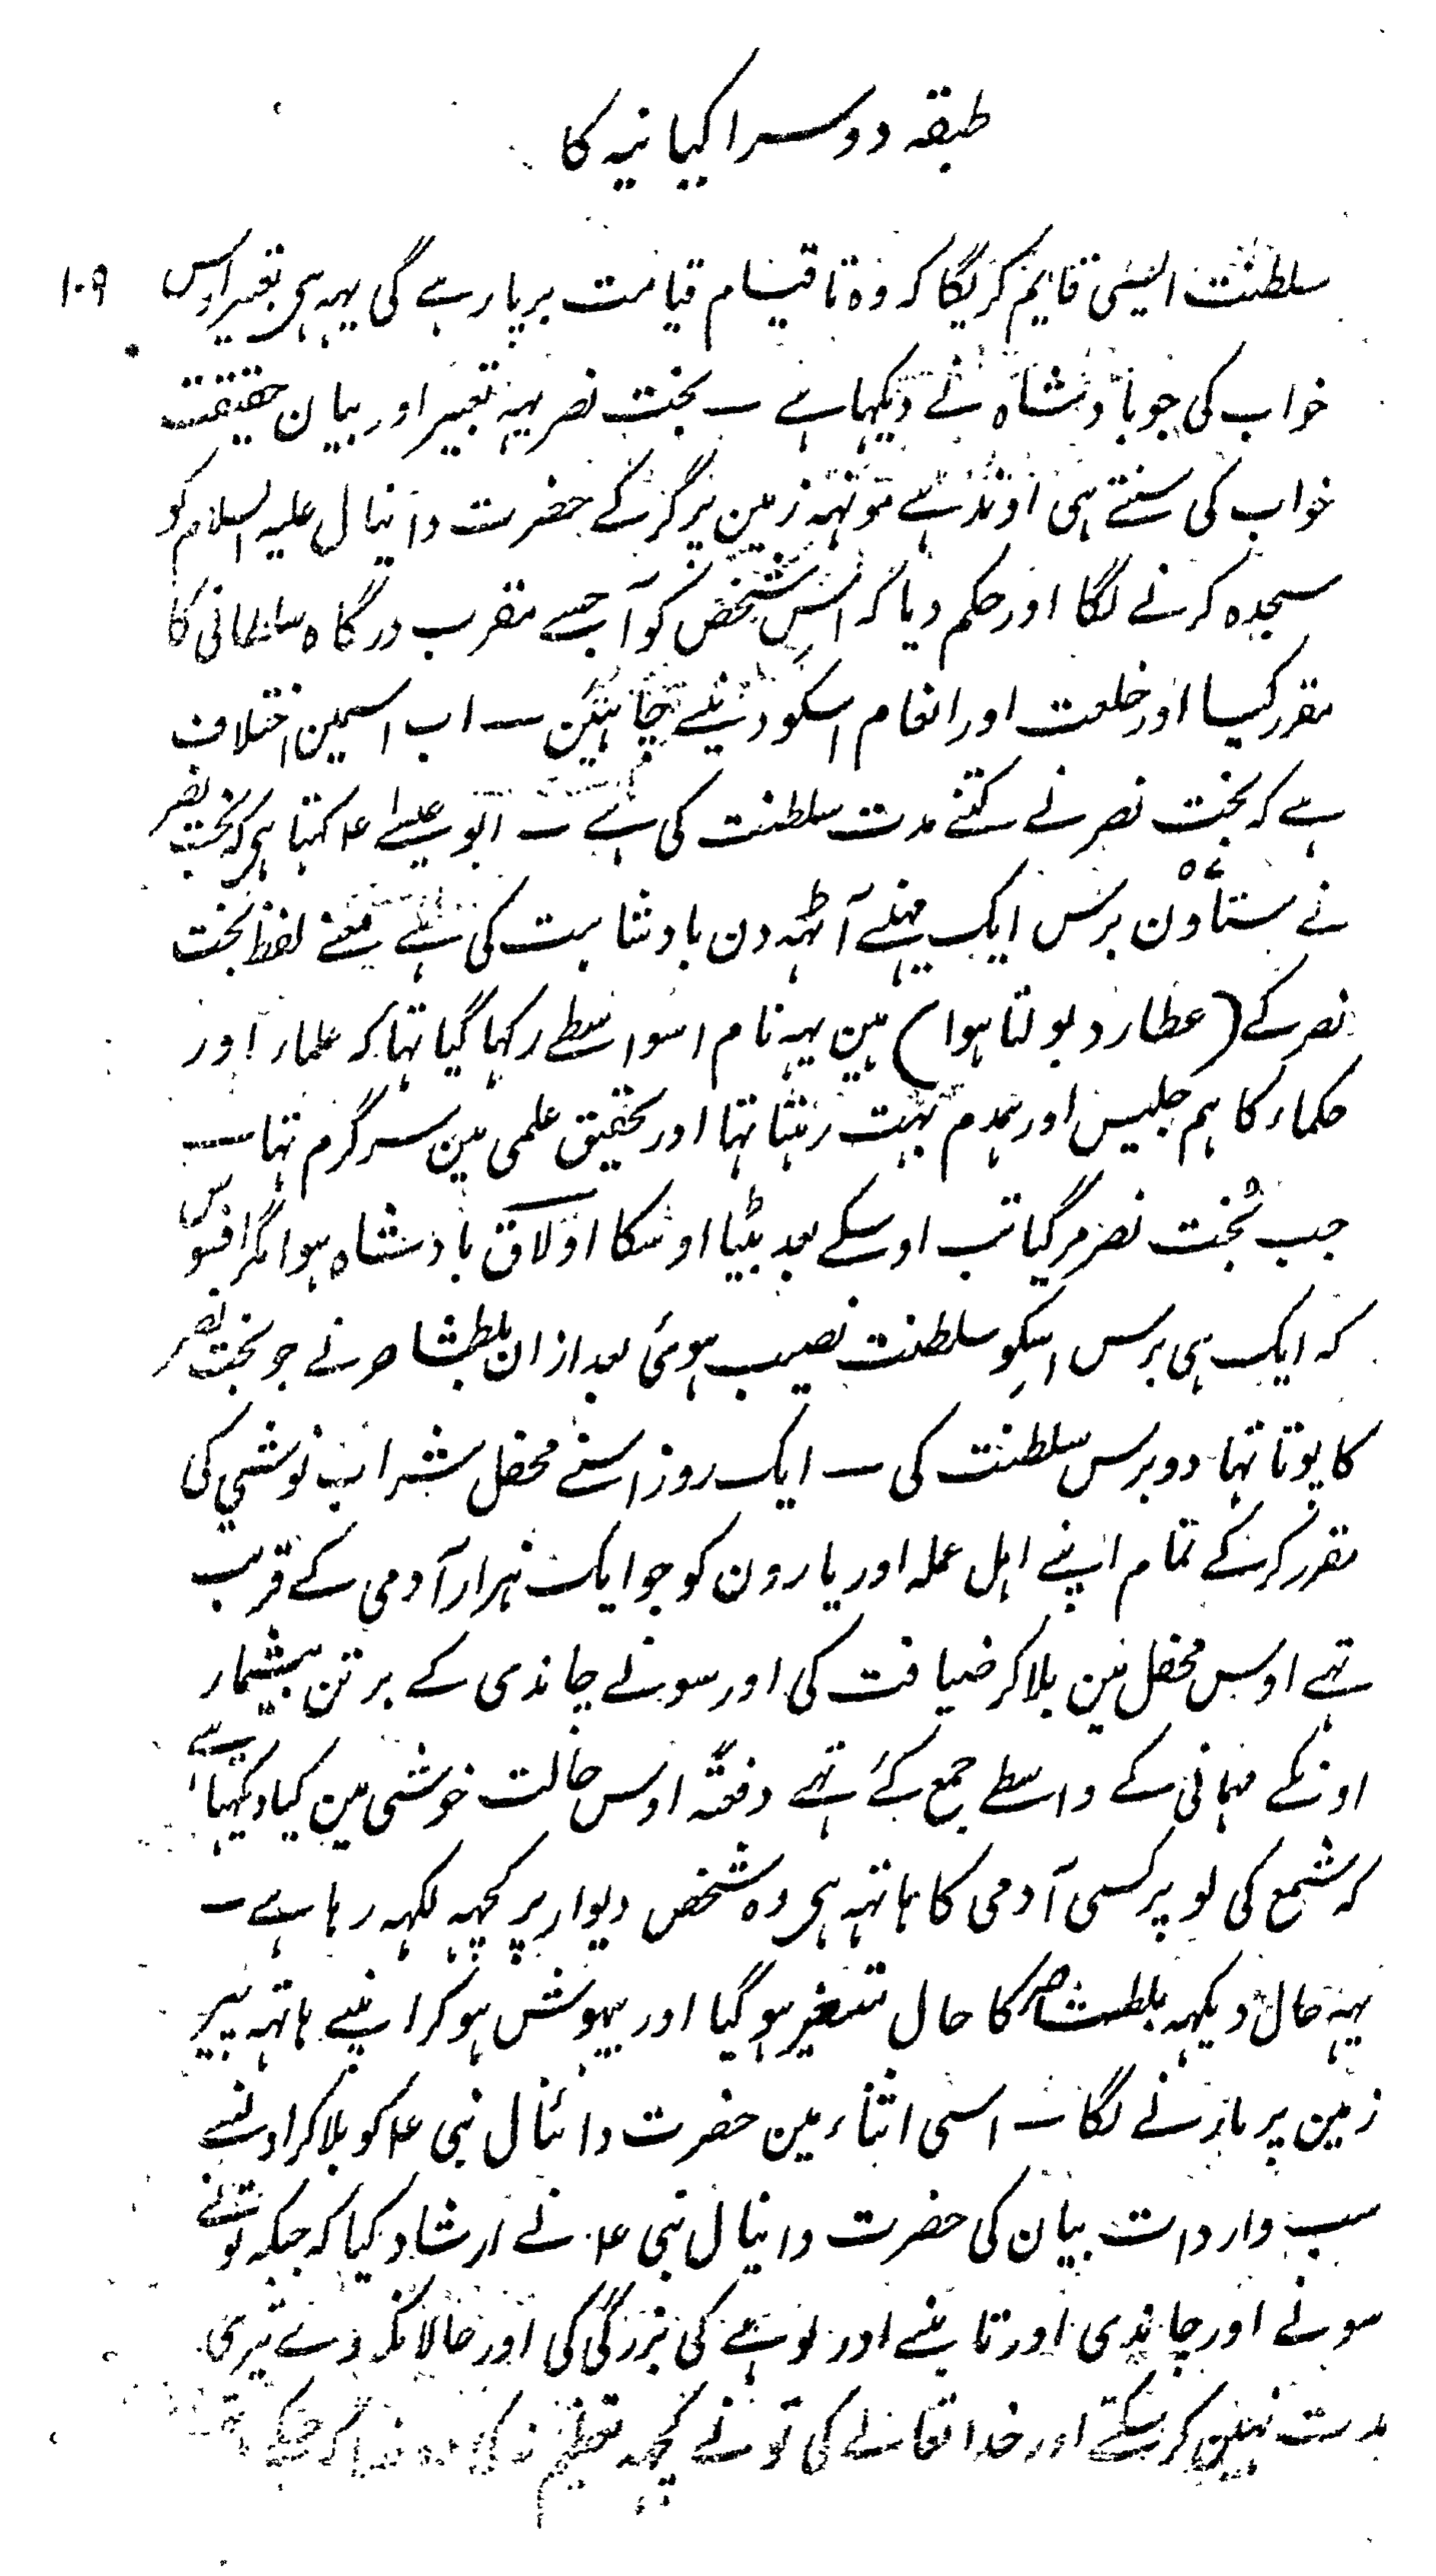 طبقہ دوسرا کیانیہ کا
۱۰۹
سلطنت ایسی قایم کریگا کہ وہ تا قیام قیامت برپا رہے گی یہہ ہی تعبیر اوس
خواب کی جو بادشاہ نے دیکہا ہے — بخت نصر یہہ تعبیر اور بیان حقیقت
خواب کی سنتے ہی اوندہے مونہہ زمین پر گر کے حضرت دانیال علیہ السلام کو
سجدہ کرنے لگا اور حکم دیا کہ اس شخص کو آج سے مقرب درگاہ سلطانی کا
مقرر کیا اور خلعت اور انعام اسکو دینے چاہئین — اب اسمین اختلاف
ہے کہ بخت نصر نے کتنے مدت سلطنت کی ہے — ابو عیسے ۴ کہتا ہی کہ بخت نصر
نے ستاون ۵۷ برس ایک مہینے آٹہہ دن بادشاہت کی ہے معنے لفظ بخت
نصر کے (عطارد بولتا ہوا) ہین یہہ نام اسواسطے رکہا گیا تہا کہ علماء اور
حکماء کا ہم جلیس اور ہمدم بہت رہتا تہا اور تحقیق علمی مین سرگرم تہا —
جب بخت نصر مرگیا تب اوسکے بعد بیٹا اوسکا اولاق بادشاہ ہوا مگر افسوس
کہ ایک ہی برس اسکو سلطنت نصیب ہوئی بعد ازان بلطشاصر نے جو بخت نصر
کا پوتا تہا دو برس سلطنت کی — ایک روز اسنے محفل شراب نوشی کی
مقرر کر کے تمام اپنے اہل عملہ اور یارون کو جو ایک ہزار آدمی کے قریب
تہے اوس محفل مین بلا کر ضیافت کی اور سونے چاندی کے برتن بیشمار
اونکے مہمانی کے واسطے جمع کئے تہے دفعتہً اوس حالت خوشی مین کیا دیکہتا ہے
کہ شمع کی لو پر کسی آدمی کا ہاتہہ ہی وہ شخص دیوار پر کچہہ لکہہ رہا ہے —
یہہ حال دیکہہ بلطشاصر کا حال متغیر ہو گیا اور بیہوش ہو کر اپنے ہاتہہ پیر
زمین پر مارنے لگا — اسی اثناء مین حضرت دانیال نبی ۴ کو بلا کر اونسے
سب واردات بیان کی حضرت دانیال نبی ۴ نے ارشاد کیا کہ جبکہ تو نے
سونے اور چاندی اور تانبے اور لوہے کی بزرگی کی اور حالانکہ وے تیری
مدت نہین کر سکتے اور خدا تعالے کی تو نے کچہہ تعظیم نہ کی وہ خدا کہ جسکے